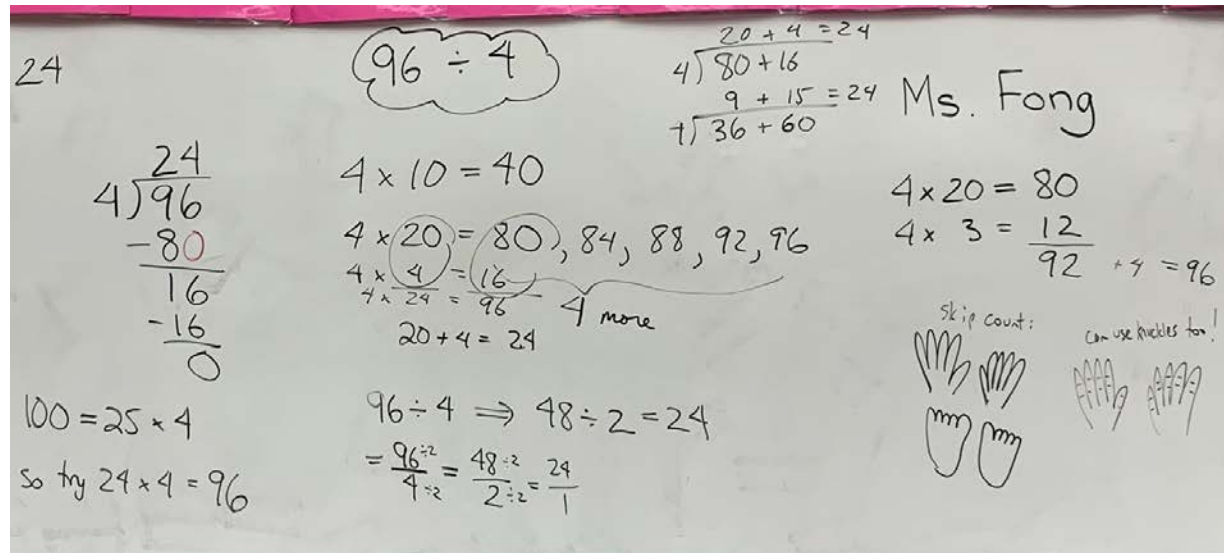 24
24
4)96
-80
16
-16
0
100 = 25 × 4
so try 24 × 4 = 96
96 ÷ 4
4 × 10 = 40
4 × 20 = 80, 84, 88, 92, 96
4 × 4 = 16
4 × 24 = 96
4 more
20 + 4 = 24
96 ÷ 4 ⇒ 48 ÷ 2 = 24
= 96÷2/4÷2 = 48÷2/2÷2 = 24/1
20 + 4 = 24
4)80 + 16
9 + 15 = 24
4)36 + 60
Ms. Fong
4 × 20 = 80
4 × 3 = 12
92 + 4 = 96
skip count:
can use knuckles too!